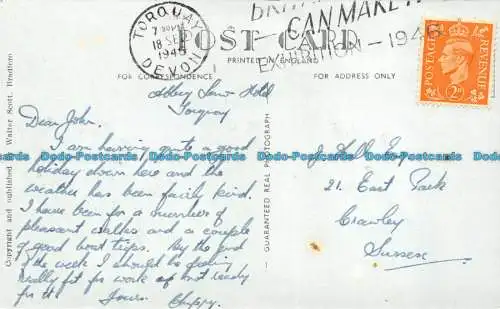 BRITAIN
CAN MAKE IT
EXHIBITION - 1946
TORQUAY
18 SEP
1946
DEVON
POST CARD
PRINTED IN ENGLAND
FOR CORRESPONDENCE
FOR ADDRESS ONLY
POSTAGE
REVENUE
2D
Abbey Lawn Hotel
Torquay
Dear John,
I am having quite a good
holiday down here and the
weather has been fairly kind.
I have been for a number of
pleasant walks and a couple
of good boat trips. By the end
of the week I should be feeling
really fit for work if not ready
for it! Yours
J. Hall
21, East Park
Crawley
Sussex
GUARANTEED REAL PHOTOGRAPH
Copyright and published by Walter Scott, Bradford
Dodo-Postcards